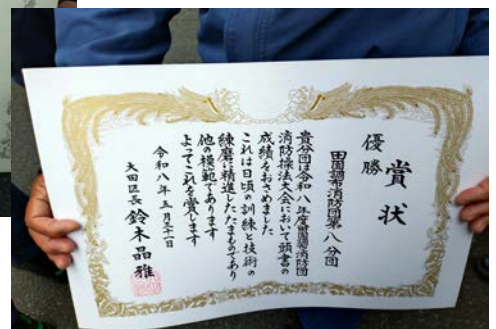 賞状
優勝
田園調布消防団第八分団
貴分団は令和八年度田園調布消防団
消防操法大会において頭書の
成績をおさめました
これは日頃の訓練と技術の
練磨に精進したたまものであり
他の模範であります
よってこれを賞します
令和八年五月三十一日
大田区長 鈴木晶雅